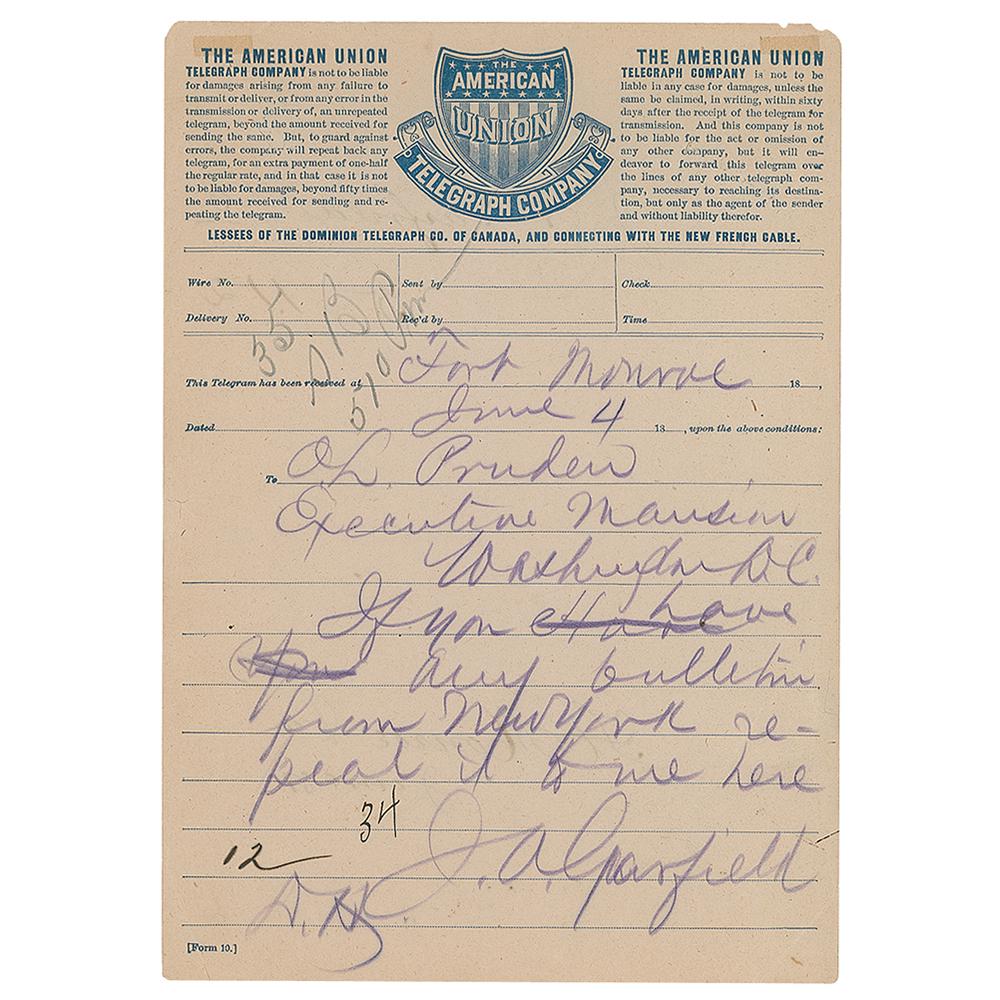 THE AMERICAN UNION
TELEGRAPH COMPANY is not to be liable
for damages arising from any failure to
transmit or deliver, or from any error in the
transmission or delivery of, an unrepeated
telegram, beyond the amount received for
sending the same. But, to guard against
errors, the company will repeat back any
telegram, for an extra payment of one-half
the regular rate, and in that case it is not
to be liable for damages, beyond fifty times
the amount received for sending and re-
peating the telegram.
THE
AMERICAN
UNION
TELEGRAPH COMPANY
THE AMERICAN UNION
TELEGRAPH COMPANY is not to be
liable in any case for damages, unless the
same be claimed, in writing, within sixty
days after the receipt of the telegram for
transmission. And this company is not
to be liable for the act or omission of
any other company, but it will en-
deavor to forward this telegram over
the lines of any other telegraph com-
pany, necessary to reaching its destina-
tion, but only as the agent of the sender
and without liability therefor.
LESSEES OF THE DOMINION TELEGRAPH CO. OF CANADA, AND CONNECTING WITH THE NEW FRENCH CABLE.
Wire No. Sent by Check
Delivery No. Rec'd by Time
35
510 Pm
This Telegram has been received at Fort Monroe 18 ,
Dated June 4 18 , upon the above conditions:
To O L Pruden
Executive Mansion
Washington D.C.
If you Have have
any bulletin
from New York re-
peat it to me here
34
12
J. A. Garfield
D.H.
[Form 10.]